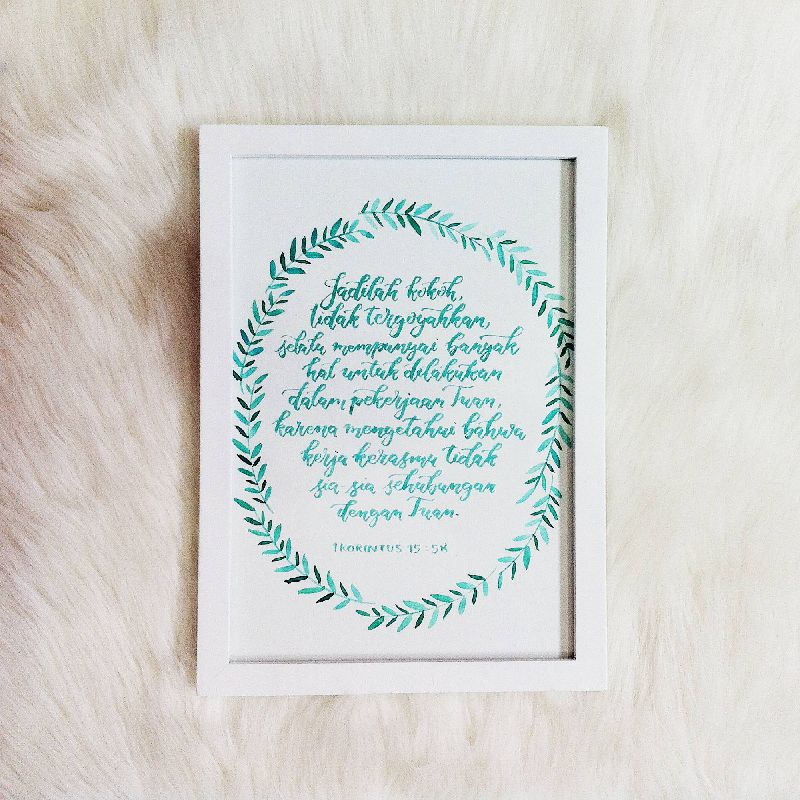 Jadilah kokoh,
tidak tergoyahkan,
selalu mempunyai banyak
hal untuk dilakukan
dalam pekerjaan Tuan,
karena mengetahui bahwa
kerja kerasmu tidak
sia-sia sehubungan
dengan Tuan.
1 KORINTUS 15:58